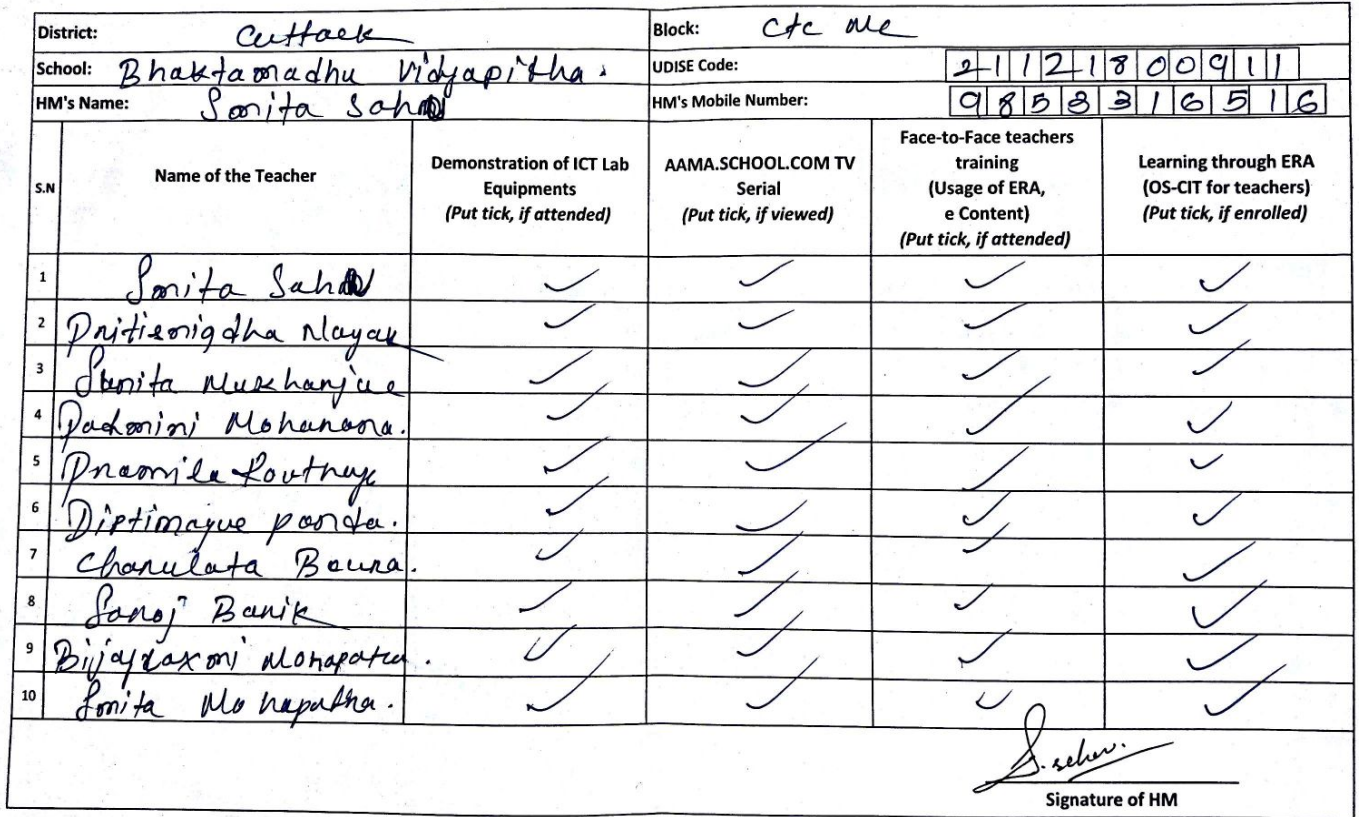 District: Cuttack Block: Ctc Mc
School: Bhaktamadhu Vidyapitha. UDISE Code: 21121800911
HM's Name: Smita Sahu HM's Mobile Number: 9858316516
S.N Name of the Teacher Demonstration of ICT Lab Equipments (Put tick, if attended) AAMA.SCHOOL.COM TV Serial (Put tick, if viewed) Face-to-Face teachers training (Usage of ERA, e Content) (Put tick, if attended) Learning through ERA (OS-CIT for teachers) (Put tick, if enrolled)
1 Smita Sahu ✓ ✓ ✓ ✓
2 Pritisnigdha Nayak ✓ ✓ ✓ ✓
3 Sunita Mukharjee ✓ ✓ ✓ ✓
4 Padmini Moharana. ✓ ✓ ✓ ✓
5 Pramila Routray ✓ ✓ ✓ ✓
6 Diptimayee panda. ✓ ✓ ✓ ✓
7 Charulata Beura. ✓ ✓ ✓ ✓
8 Saroj Barik ✓ ✓ ✓ ✓
9 Bijaylaxmi Mohapatra. ✓ ✓ ✓ ✓
10 Smita Mohapatra. ✓ ✓ ✓ ✓
Signature of HM